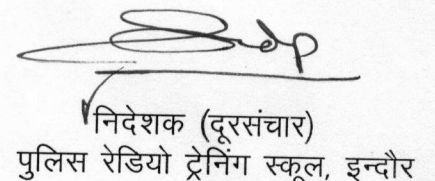 निदेशक (दूरसंचार)
पुलिस रेडियो ट्रेनिंग स्कूल, इन्दौर